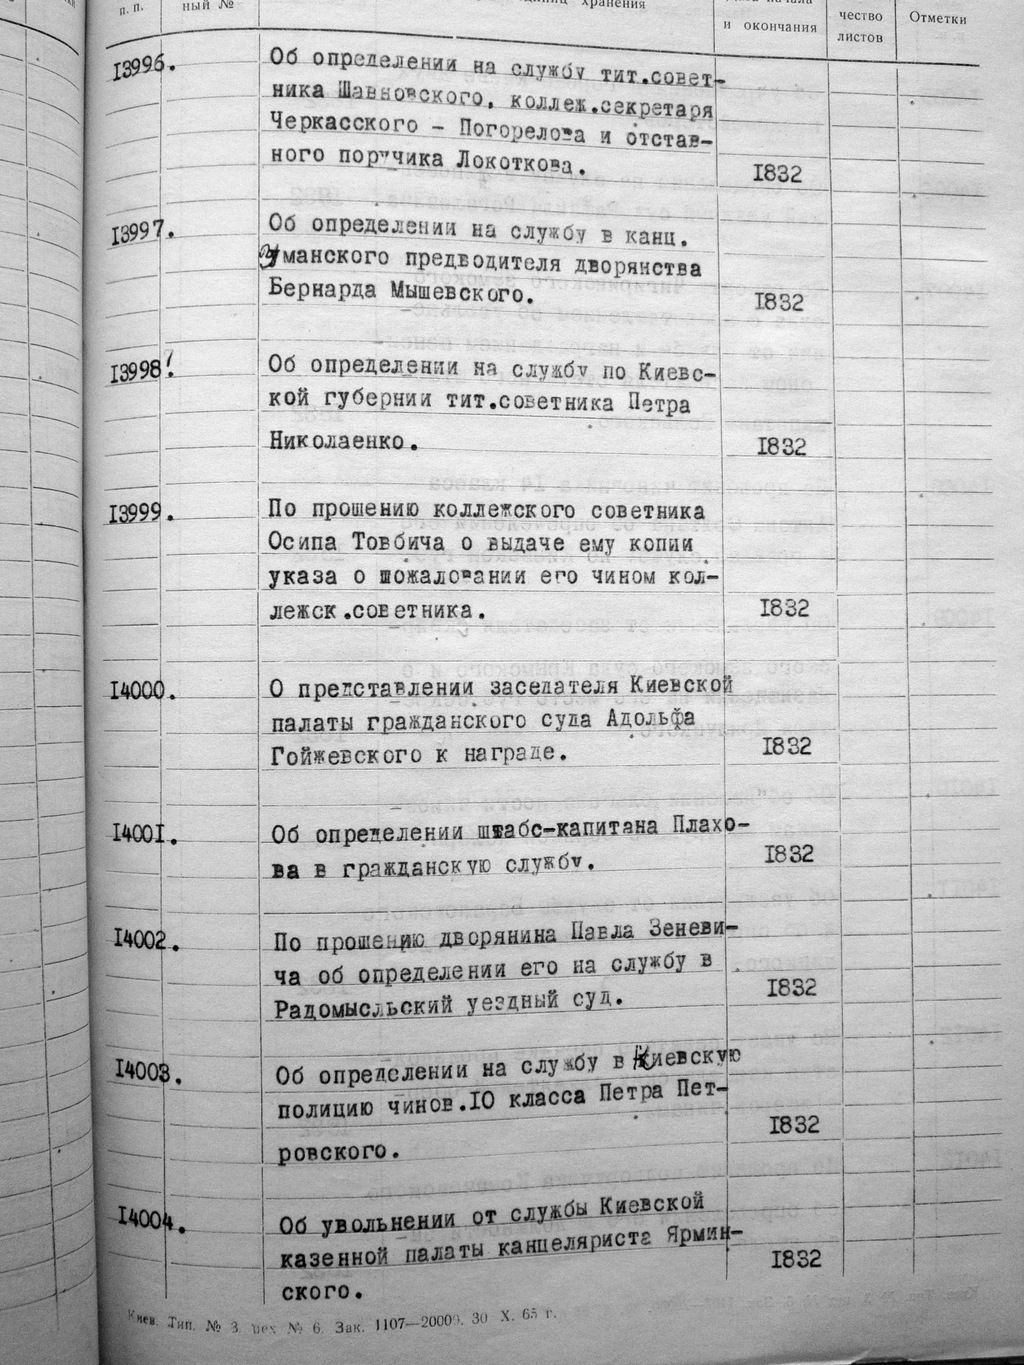 п. п.
ный №
единиц хранения
и окончания
чество
листов
Отметки
13996.
Об определении на службу тит.совет-
ника Шавновского, коллеж.секретаря
Черкасского - Погорелова и отстав-
ного портчика Локоткова.
1832
13997.
Об определении на службу в канц.
Уманского предводителя дворянства
Бернарда Мышевского.
1832
13998.
Об определении на службу по Киевс-
кой губернии тит.советника Петра
Николаенко.
1832
13999.
По прошению коллежского советника
Осипа Товбича о выдаче ему копии
указа о пожаловании его чином кол-
лежск.советника.
1832
14000.
О представлении заседателя Киевской
палаты гражданского суда Адольфа
Гойжевского к награде.
1832
14001.
Об определении штабс-капитана Плахо-
ва в гражданскую службу.
1832
14002.
По прошению дворянина Павла Зеневи-
ча об определении его на службу в
Радомысльский уездный суд.
1832
14003.
Об определении на службу в Киевскую
полицию чинов.10 класса Петра Пет-
ровского.
1832
14004.
Об увольнении от службы Киевской
казенной палаты канцеляриста Ярмин-
ского.
1832
Киев. Тип. № 3. цех № 6. Зак. 1107—20000. 30 X. 65 г.